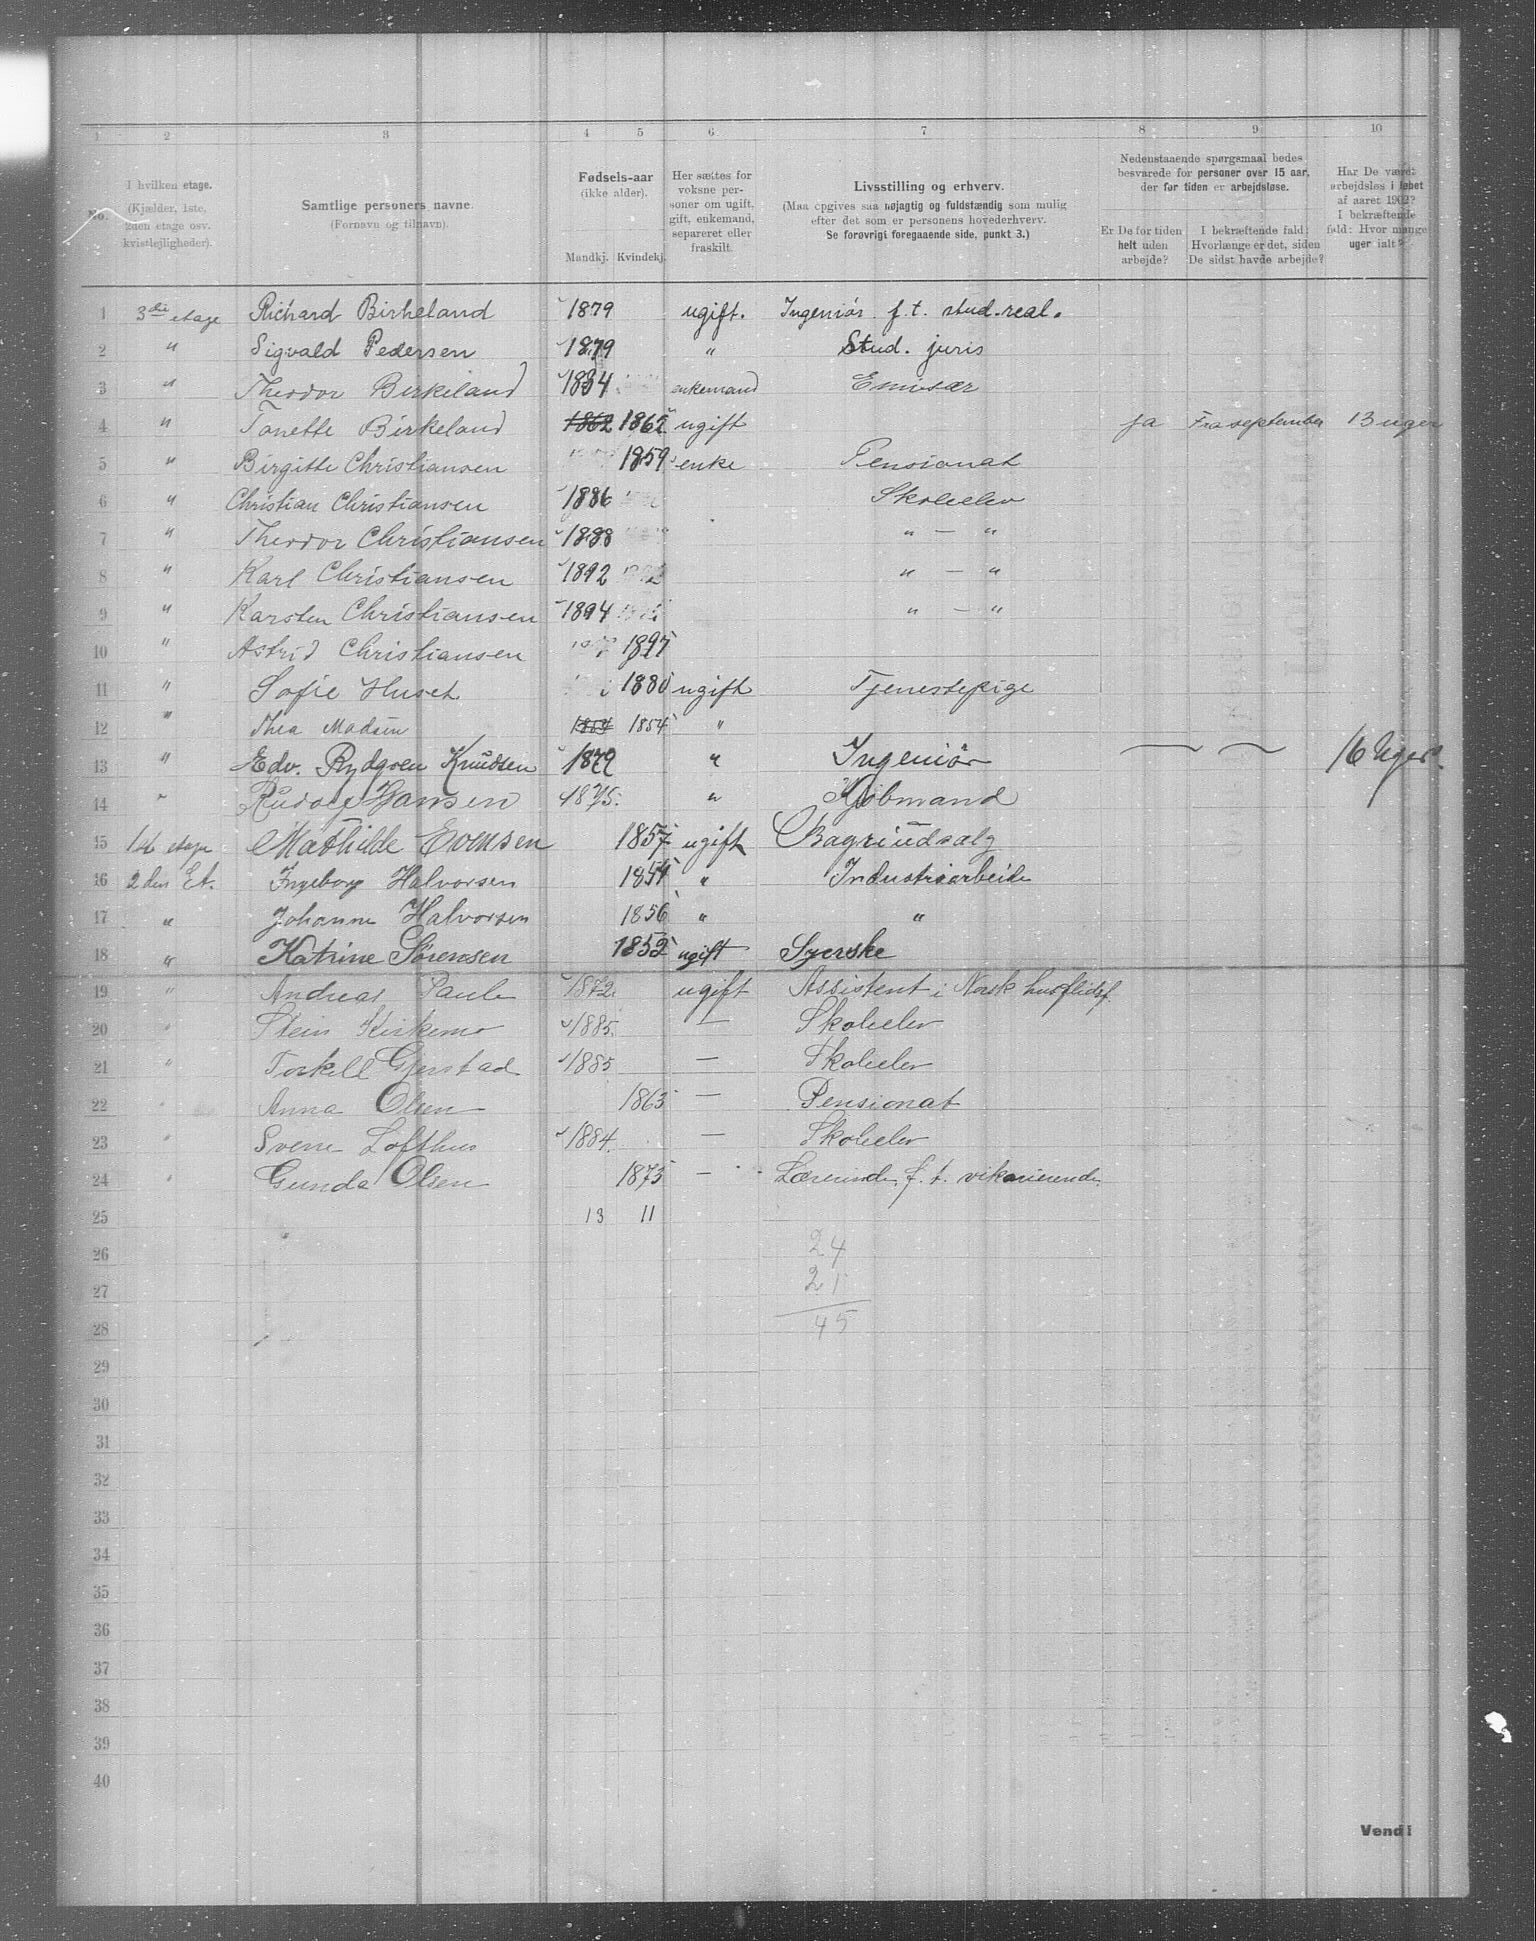 1 2 3 4 5 6 7 8 9 10
No.
I hvilken etage.
(Kjælder, 1ste,
2den etage osv.
kvistlejligheder).
Samtlige personers navne.
(Fornavn og tilnavn).
Fødsels-aar
(ikke alder).
Mandkj. Kvindekj.
Her sættes for
voksne per-
soner om ugift,
gift, enkemand,
separeret eller
fraskilt.
Livsstilling og erhverv.
(Maa opgives saa nøjagtig og fuldstændig som mulig
efter det som er personens hovederhverv.
Se forøvrigt foregaaende side, punkt 3.)
Nedenstaaende spørgsmaal bedes
besvarede for personer over 15 aar,
der for tiden er arbejdsløse.
Er De for tiden
helt uden
arbejde?
I bekræftende fald:
Hvorlænge er det, siden
De sidst havde arbejde?
Har De været
arbejdsløs i løbet
af aaret 1902?
I bekræftende
fald: Hvor mange
uger ialt?
1 3die etage Richard Birkeland 1879 ugift. Ingeniør f.t. stud. real.
2 " Sigvald Pedersen 1879 " Stud. juris
3 " Theodor Birkeland 1834 enkemand Emisær
4 " Tonette Birkeland 1862 1862 ugift ja Fra september 13 uger
5 " Birgitte Christiansen 1859 enke Pensionat
6 " Christian Christiansen 1886 Skoleelev
7 " Theodor Christiansen 1888 " — "
8 " Karl Christiansen 1892 " — "
9 " Karsten Christiansen 1894 " — "
10 " Astrid Christiansen 1897
11 " Sofie Huset 1880 ugift Tjenestepige
12 " Thea Madsen 1854 1854 "
13 " Edv. Rydgren Knudsen 1879 " Ingeniör — — 16 Uger.
14 " Rudolf Hansen 1875. " Kjöbmand
15 1st etage Mathilde Evensen 1857 ugift Bageriudsalg
16 2den Et. Ingeborg Halvorsen 1854 " Industriarbeide
17 " Johanne Halvorsen 1856 " "
18 " Katrine Sørensen 1852 ugift Syerske
19 " Andreas Paule 1872 ugift Assistent i Norsk husflidsf.
20 " Stein Kirkemo 1885. — Skoleelev
21 " Torkell Gjerstad 1885 — Skoleelev
22 " Anna Olsen 1863 — Pensionat
23 " Sverre Lofthus 1884. — Skoleelev
24 " Gunda Olsen 1873 — Lærerinde f. t. vikarierende
25 13 11
26 24
27 21
28 45
29
30
31
32
33
34
35
36
37
38
39
40
Vend!